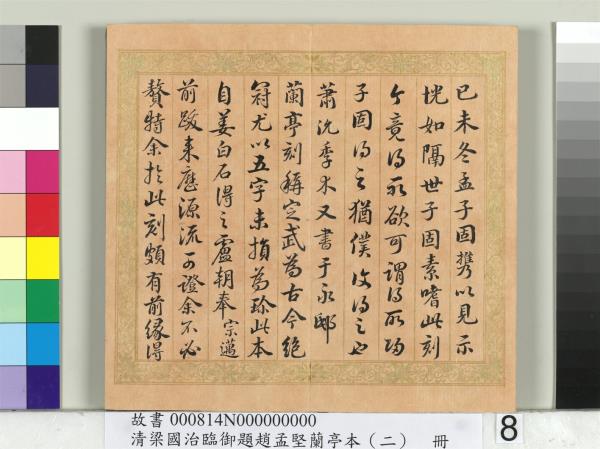 己未冬孟子固携以見示
恍如隔世子固素嗜此刻
今竟得所欲可謂得所
子固得之猶僕後得之也
蕭沇季木又書于永邸
蘭亭刻稱定武為古今絶
冠尤以五字未損為珍此本
自姜白石得之盧朝奉宗邁
前跋来歴源流可證余不必
贅特余於此刻頗有前縁得
故書 000814N000000000
清梁國治臨御題趙孟堅蘭亭本（二） 冊
8